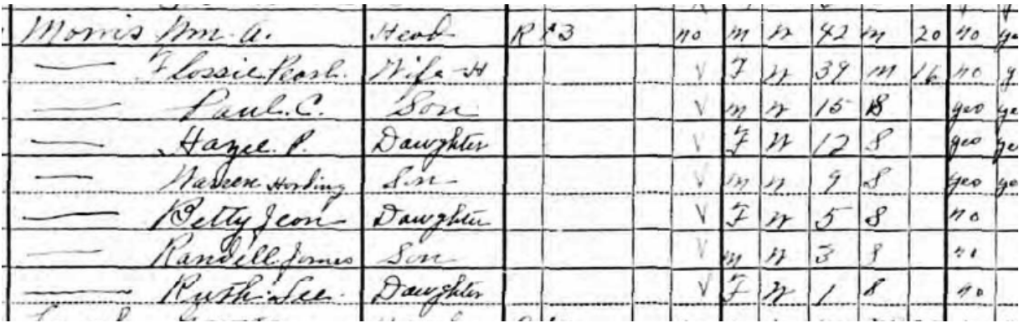 Morris Wm. A. Head R 13 no M W 42 M 20 no
— Flossie Pearl Wife-H V F W 39 M 16 no y
— Paul. C. Son V M W 15 S yes ye
— Hazel. P. Daughter V F W 12 S yes ye
— Warren Harding Son V M W 9 S yes ye
— Betty Jean Daughter V F W 5 S no
— Randell James Son V M W 3 S no
— Ruth Lee. Daughter V F W 1 S no